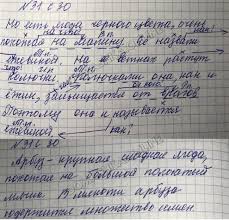 №31 с 30
Но есть ягода черного цвета, очень
похожая на малину. Её назвали
ежевикой. На её ветках растут
колючки. Колючками она, как и
ёжик, защищается от врагов.
Поэтому она и называется
ежевикой.
как?
№31 с 30
Арбуз - крупная, сладкая ягода,
похожая на большой полосатый
мячик. В мякоти арбуза
содержится множество семян.